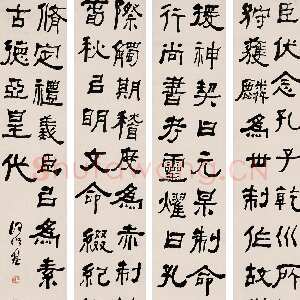 臣伏念孔子乾巛所
狩獲麟為世制作故
援神契曰元某制命
行尚書考靈燿曰孔
際觸期稽度為赤制
春秋以明文命綴紀
修定禮義臣以為素
古德亞皇代
Shufawang.CN